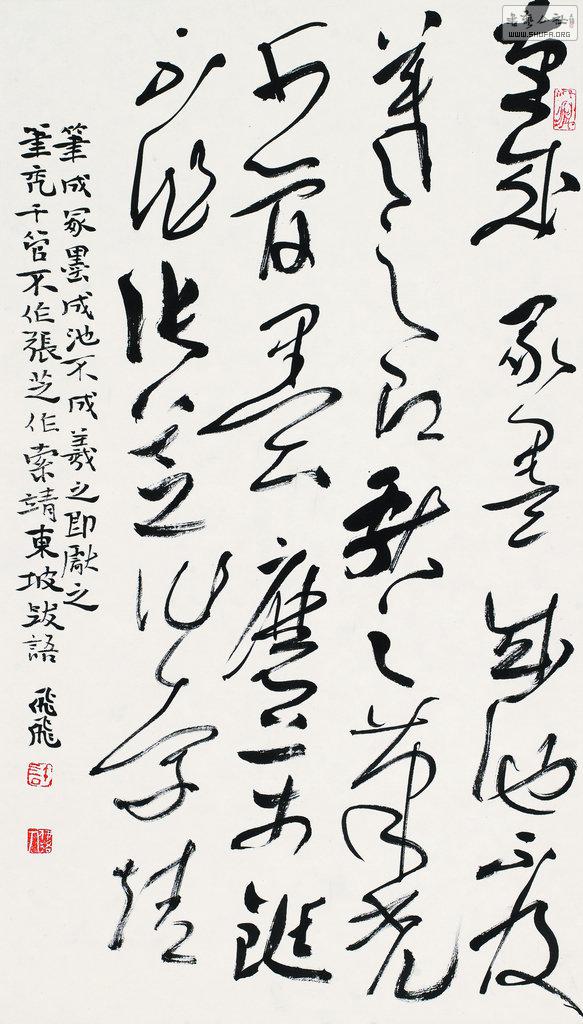 筆成冢墨成池不及
羲之即獻之筆禿
千管墨磨萬鋌
不作張芝作索靖
筆成冢墨成池不成羲之即獻之
筆禿千管不作張芝作索靖東坡跋語 飛飛
WWW.SHUFA.ORG